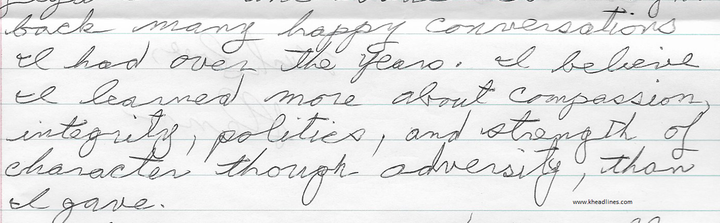 back many happy conversations
I had over the years. I believe
I learned more about compassion,
integrity, politics, and strength of
character though adversity, than
I gave.
www.kheadlines.com